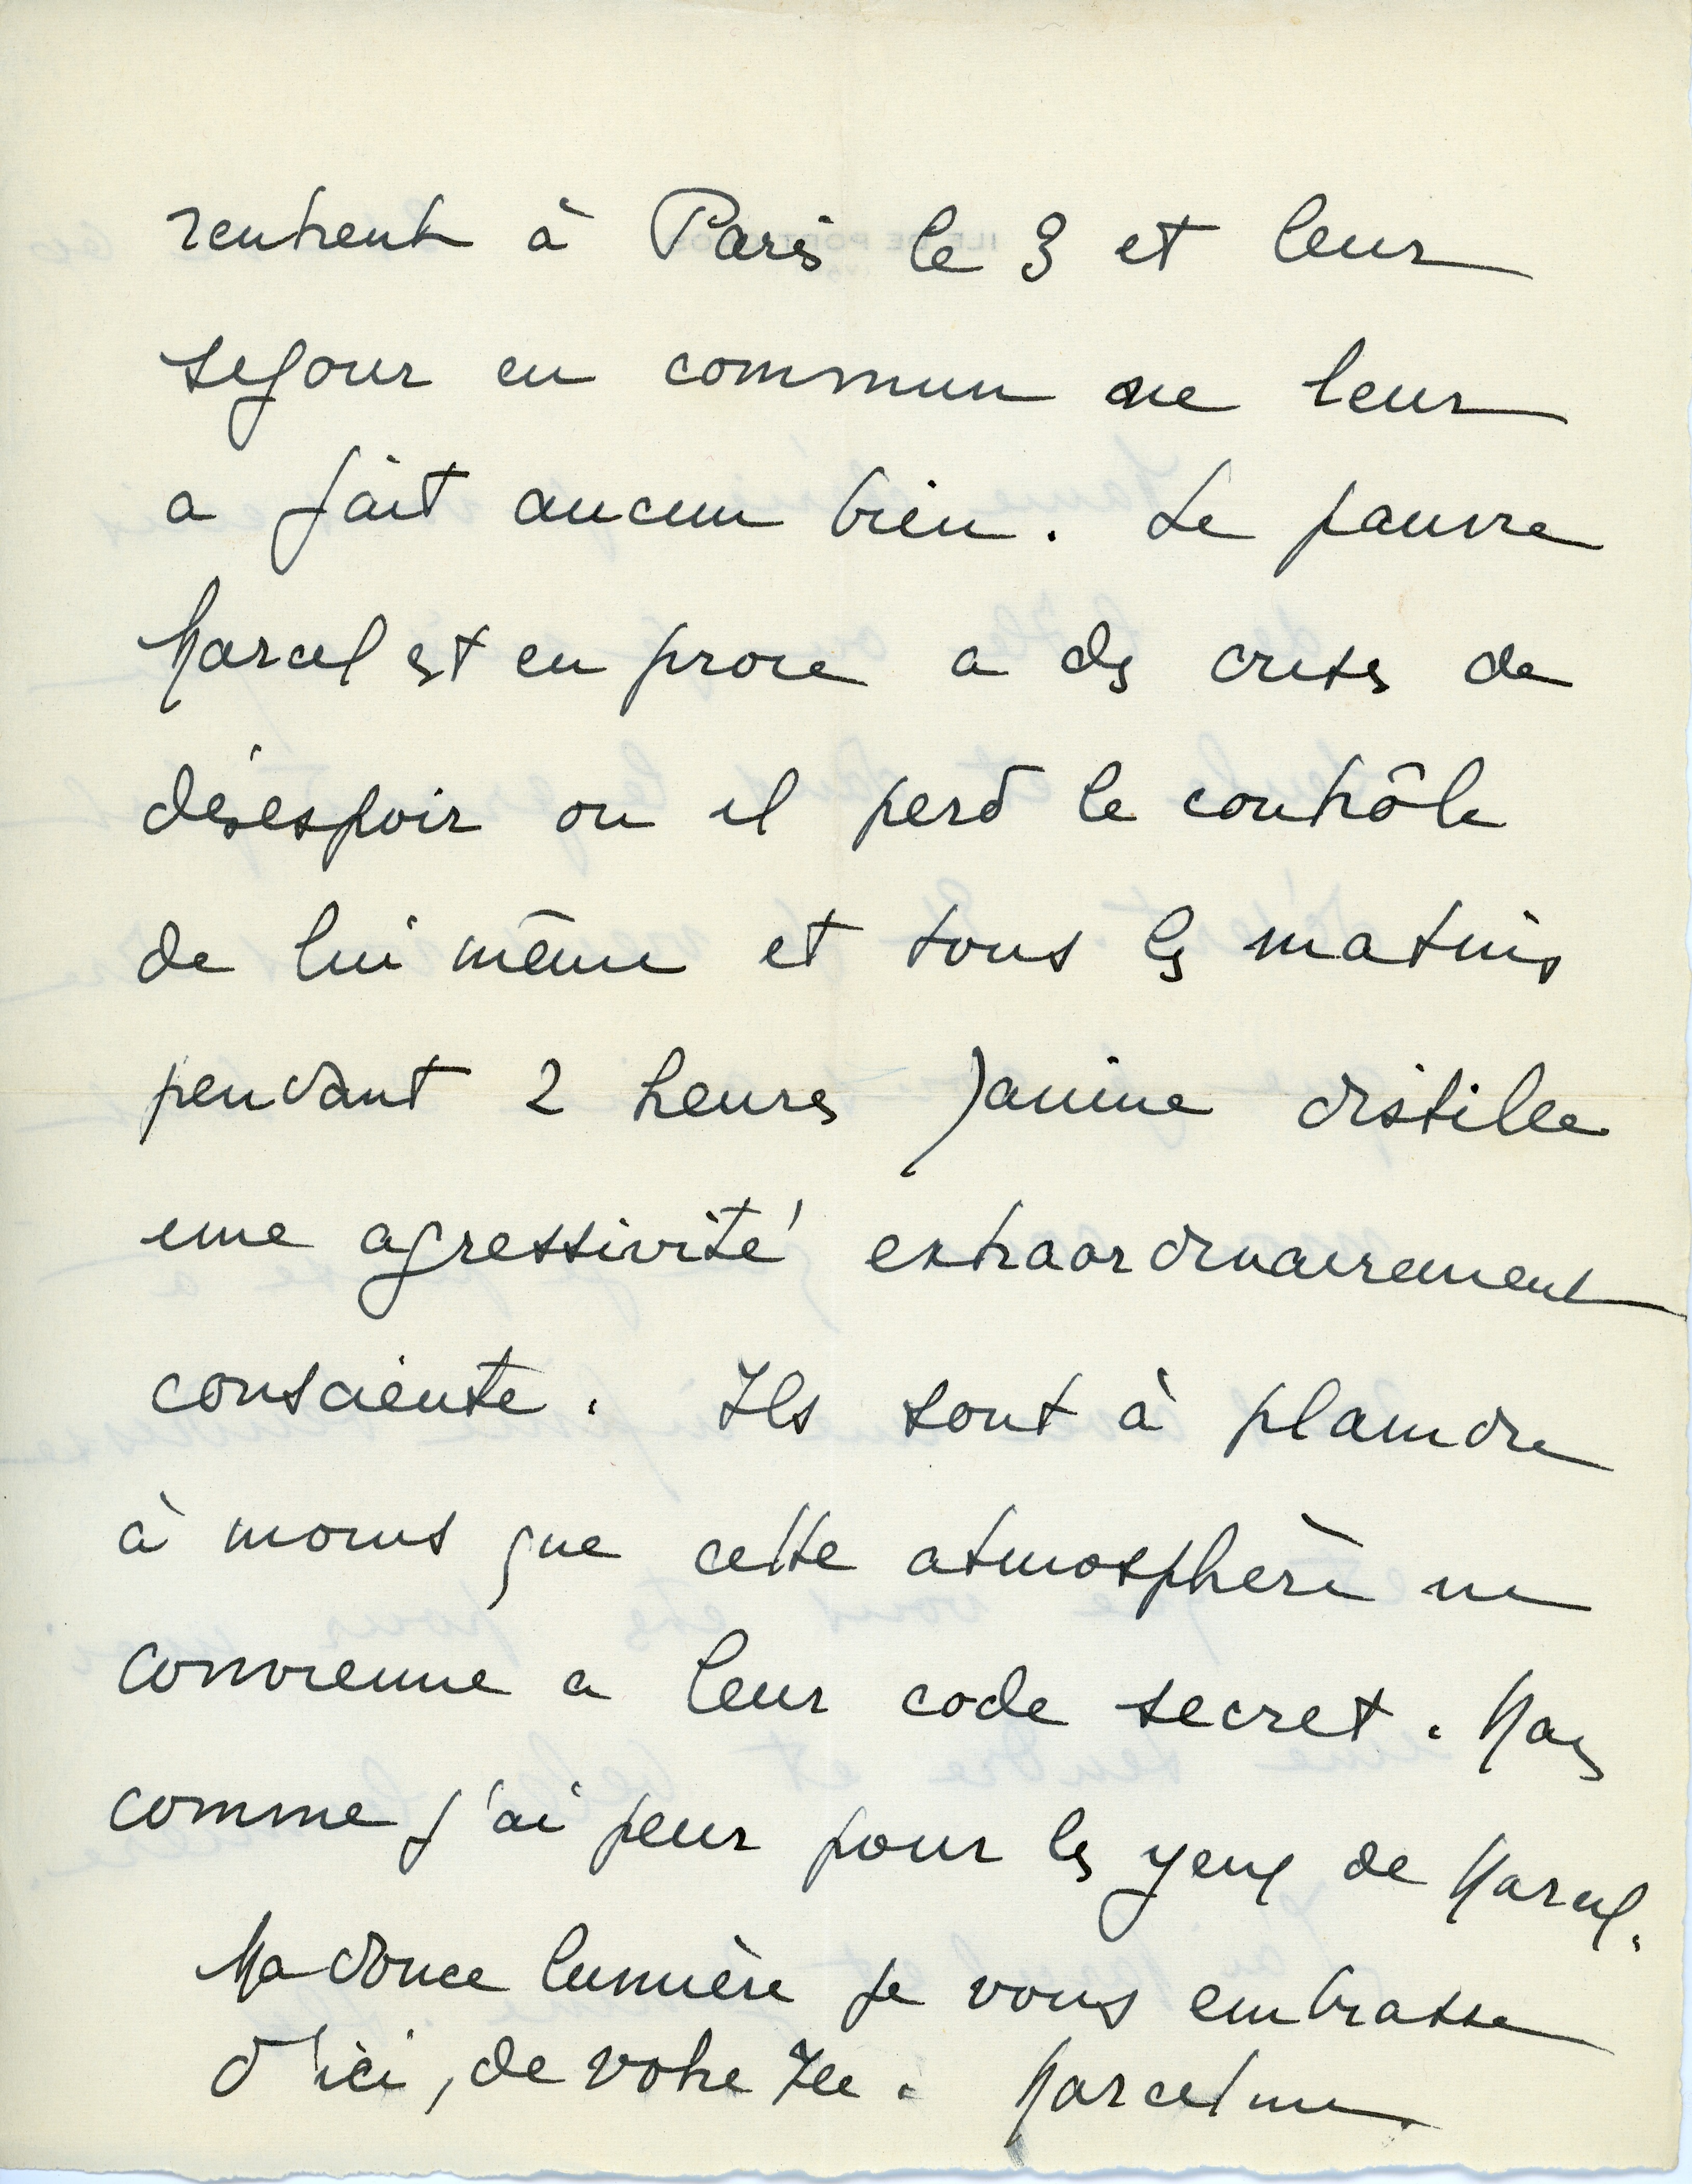 rentrent à Paris le 3 et leur
sejour en commun ne leur
a fait aucun bien. Le pauvre
Marcel est en proie a des crises de
désespoir ou il perd le contrôle
de lui même et tous les matins
pendant 2 heures Janine distille
une agressivité extraordinairement
consciente. Ils sont à plaindre
à moins que cette atmosphère ne
convienne a leur code secret. Mais
comme j'ai peur pour les yeux de Marcel.
Ma douce lumière je vous embrasse
d'ici, de votre Ile. Marceline